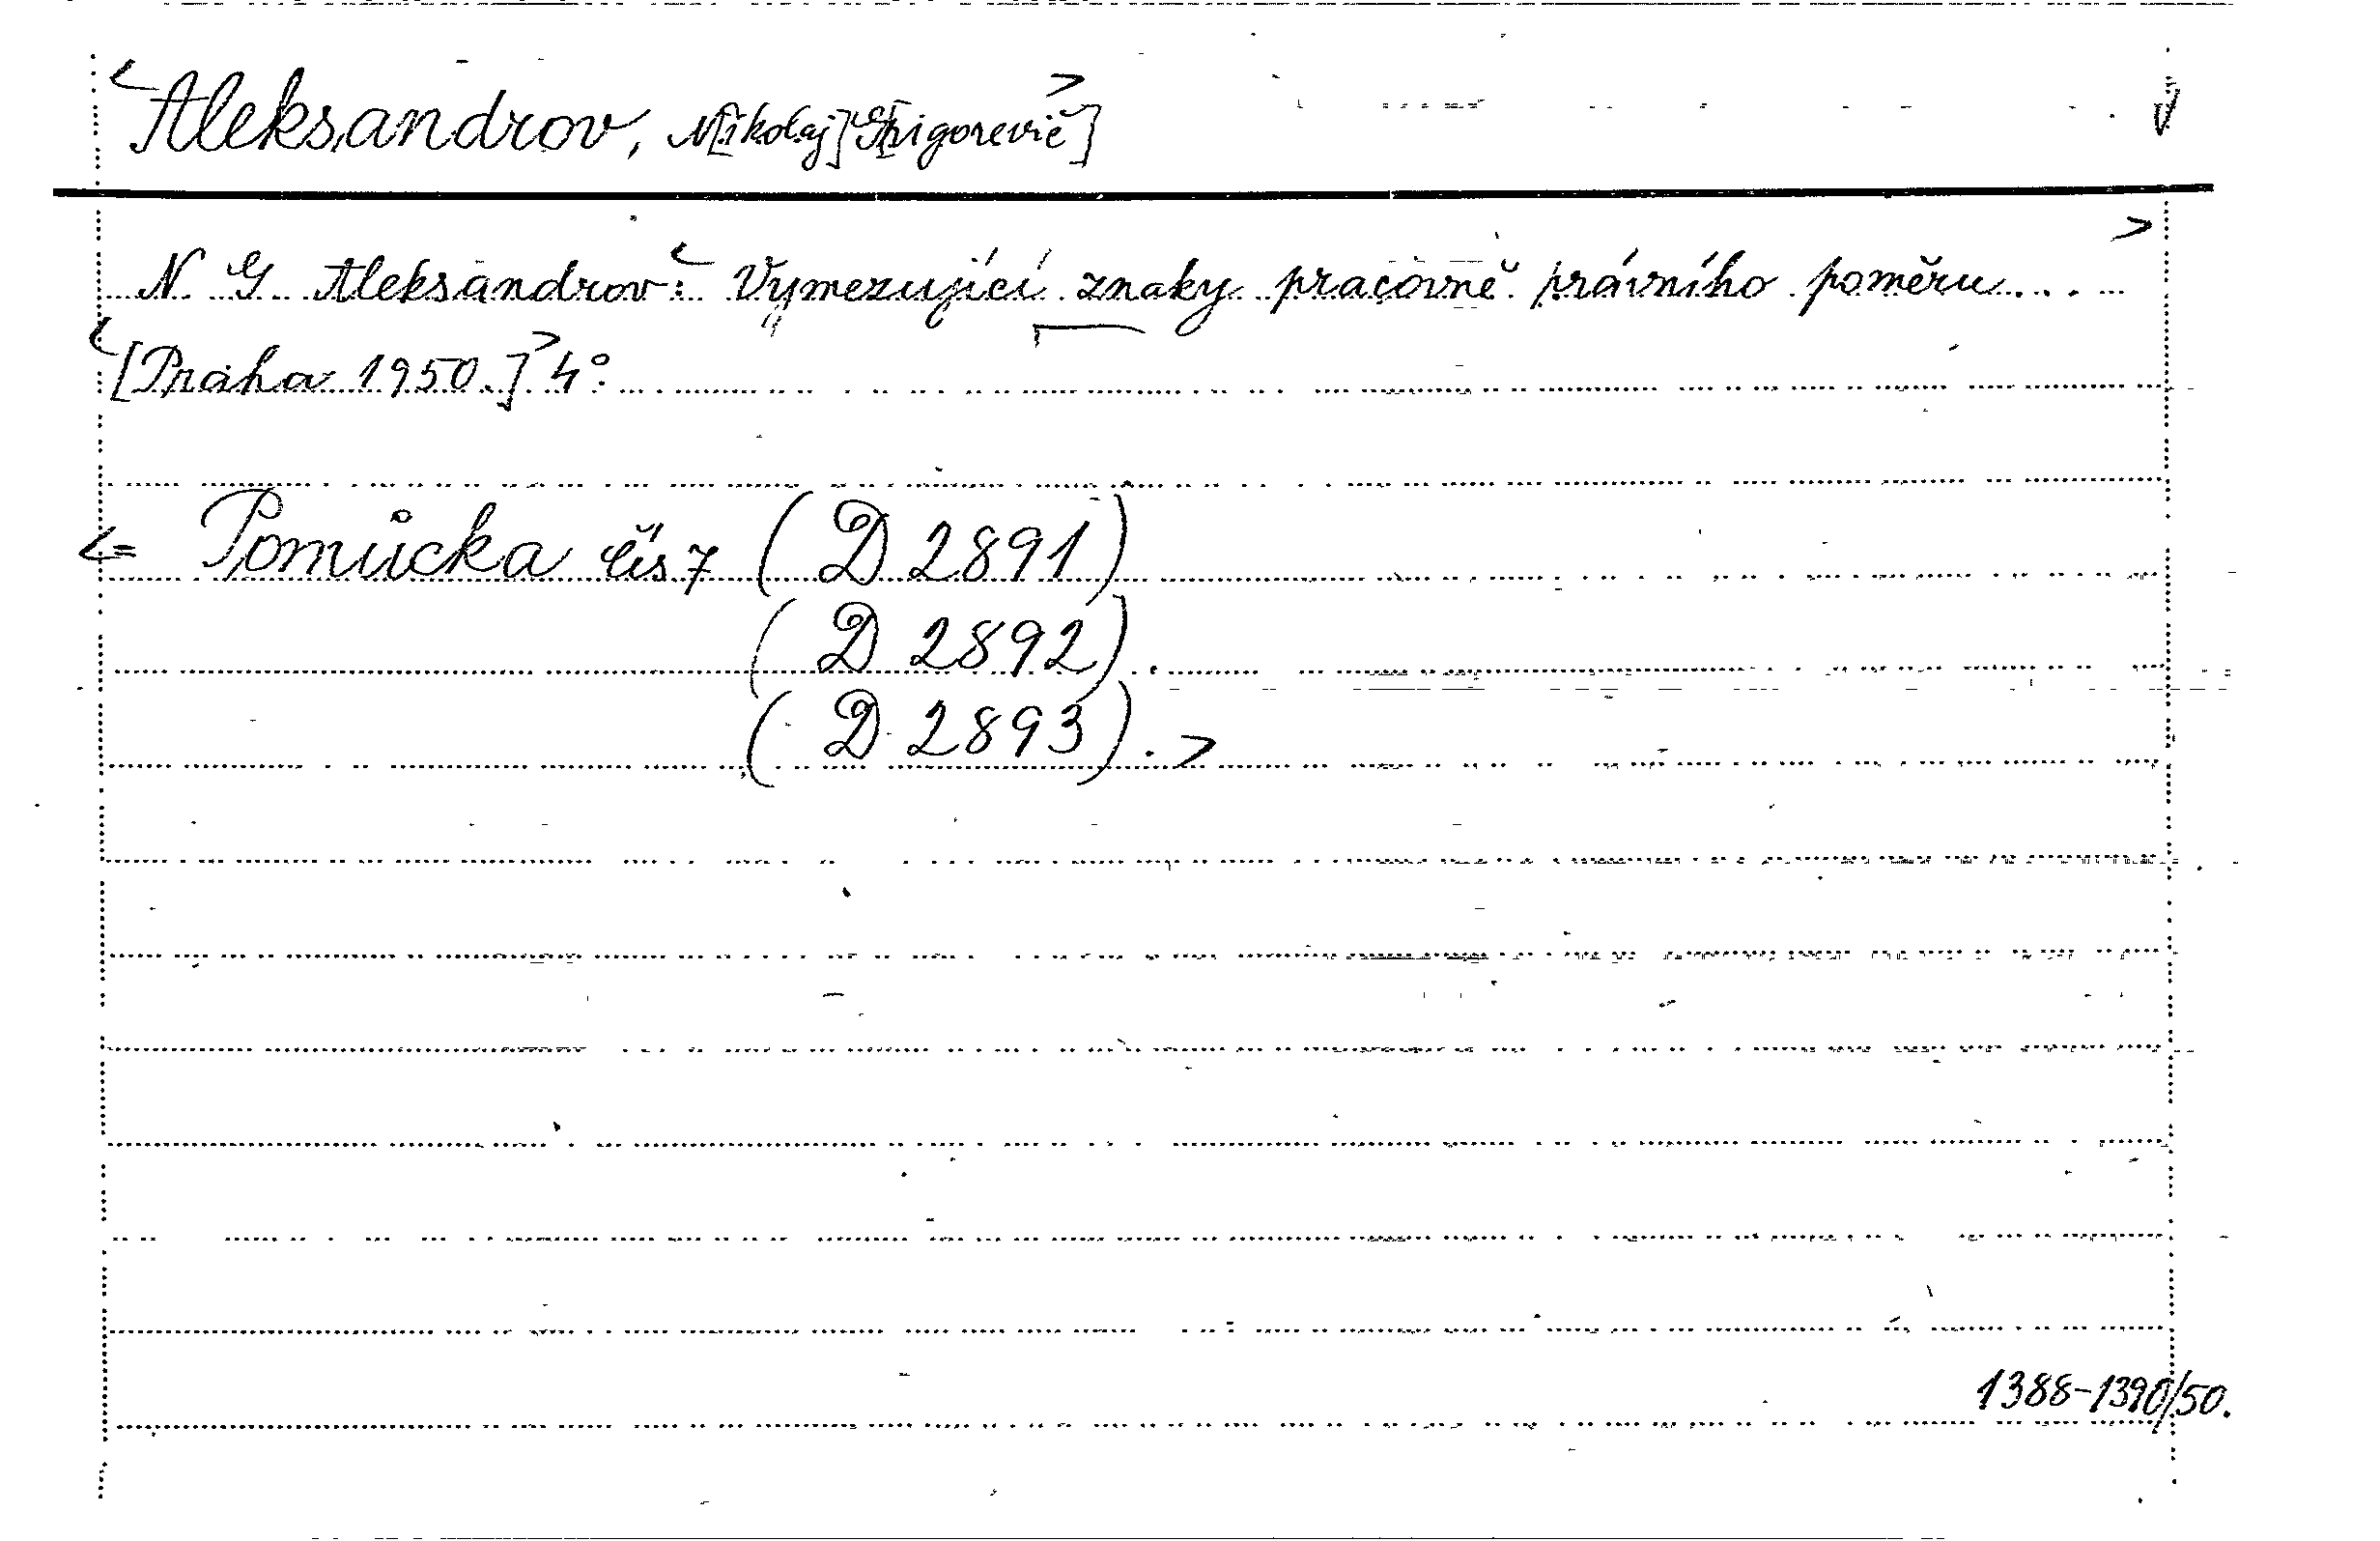 <Aleksandrov, N[ikolaj] G[rigorevič]>
N. G. Aleksandrov: <Vymezující znaky pracovně právního poměru...>
<[Praha 1950.]> 4°.
<= Pomůcka čís 7 (D 2891)
(D 2892).
(D 2893).>
1388-1390/50.